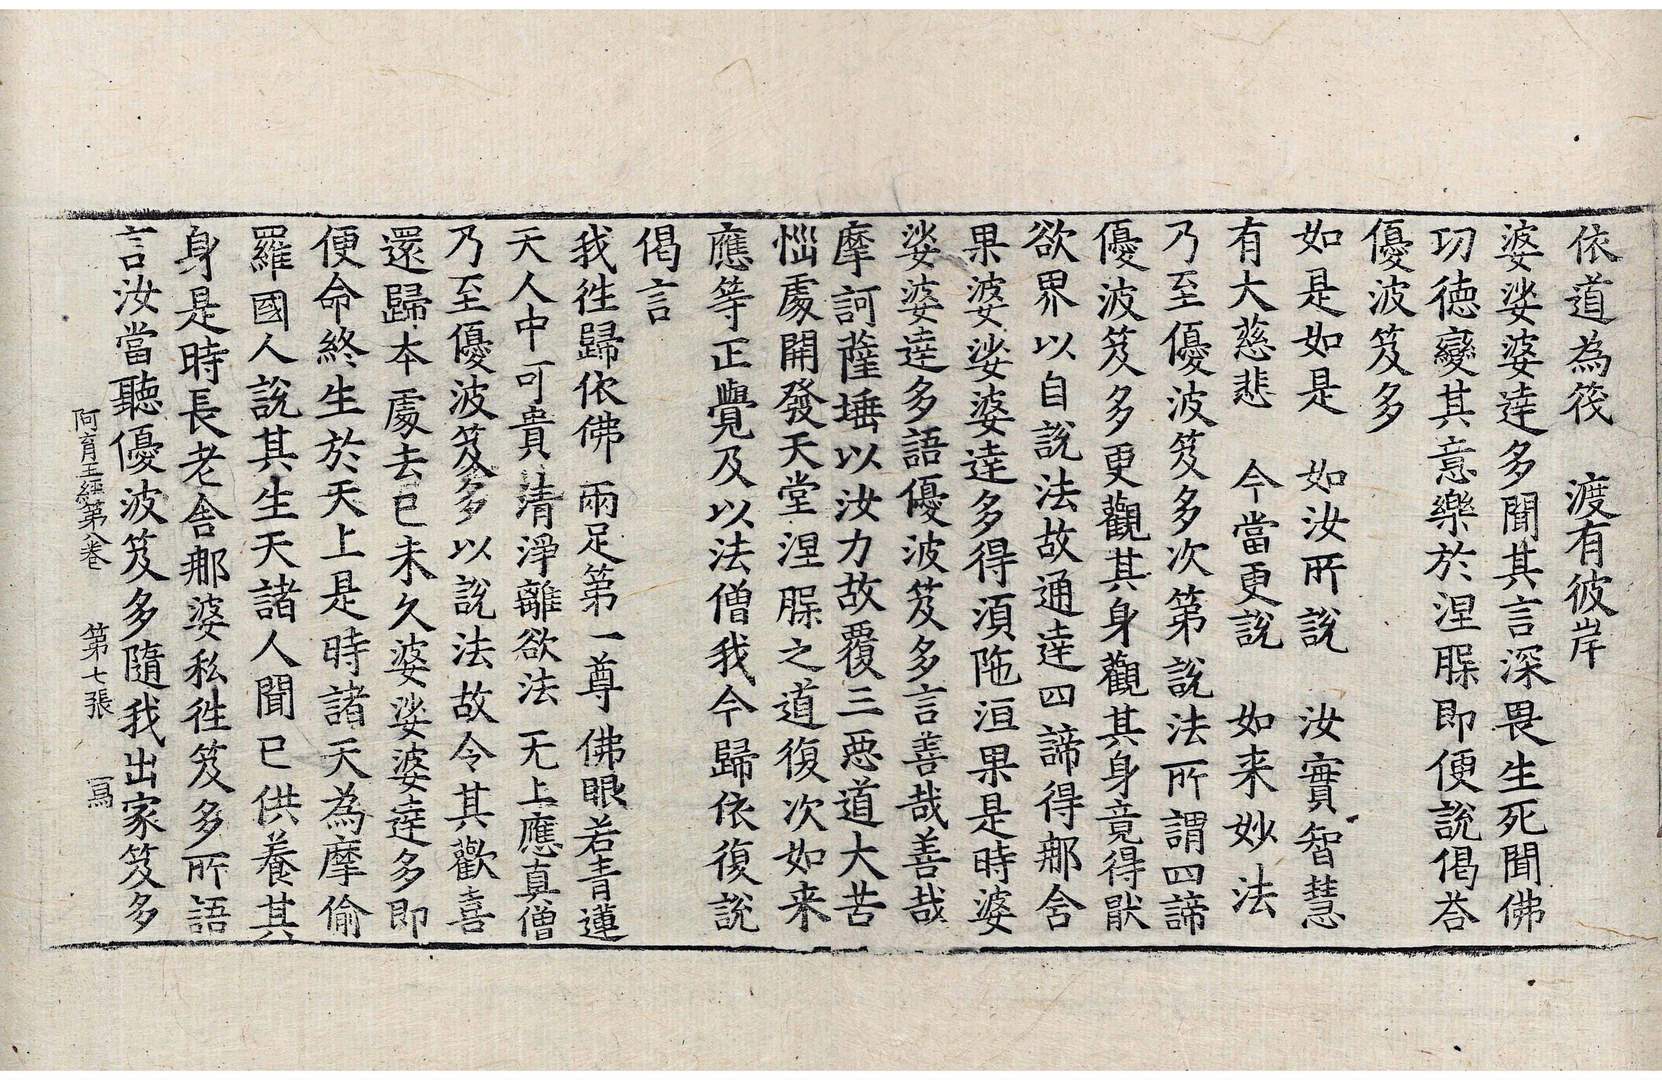 依道為筏　渡有彼岸
婆娑婆達多聞其言深畏生死聞佛
功德變其意樂於涅槃即便說偈荅
優波笈多
如是如是　如汝所說　汝實智慧
有大慈悲　今當更說　如来妙法
乃至優波笈多次第說法所謂四諦
優波笈多更觀其身觀其身竟得猒
欲界以自說法故通達四諦得那含
果婆娑婆達多得須陁洹果是時婆
娑婆達多語優波笈多言善哉善哉
摩訶薩埵以汝力故覆三惡道大苦
惱處開發天堂涅槃之道復次如来
應等正覺及以法僧我今歸依復說
偈言
我徃歸依佛　兩足第一尊　佛眼若青蓮
天人中可貴　清淨離欲法　无上應真僧
乃至優波笈多以說法故令其歡喜
還歸本處去已未久婆娑婆達多即
便命終生於天上是時諸天為摩偷
羅國人說其生天諸人聞已供養其
身是時長老舍那婆私徃笈多所語
言汝當聽優波笈多隨我出家笈多
阿育王經第八卷　第七張　冩